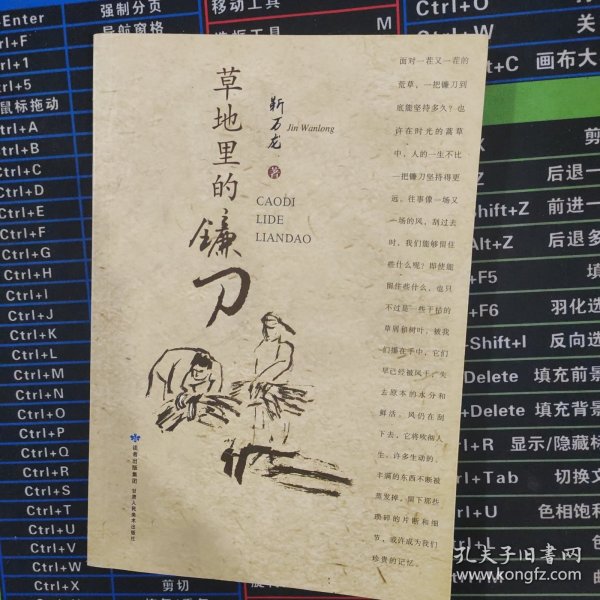 草地里的镰刀
靳万龙
Jin Wanlong
著
CAODI
LIDE
LIANDAO
面对一茬又一茬的
荒草,一把镰刀到
底能坚持多久?也
许在时光的蒿草
中,人的一生不比
一把镰刀坚持得更
远。往事像一场又
一场的风,刮过去
时,我们能够留住
些什么呢?即使能
留住些什么,也只
不过是一些干枯的
草屑和树叶,被我
们攥在手中,它们
早已经被风干,失
去原本的水分和
鲜活。风仍在刮
下去,它将吹彻人
生。许多生动的、
丰满的东西不断被
蒸发掉,留下那些
琐碎的片断和细
节,或许成为我们
珍贵的记忆。
读者出版集团
甘肃人民美术出版社
Enter 强制分页
导航窗格
鼠标拖动
Ctrl+A
Ctrl+B
Ctrl+C
Ctrl+D
Ctrl+E
Ctrl+F
Ctrl+G
Ctrl+H
Ctrl+I
Ctrl+J
Ctrl+K
Ctrl+L
Ctrl+M
Ctrl+N
Ctrl+O
Ctrl+P
Ctrl+Q
Ctrl+R
Ctrl+S
Ctrl+T
Ctrl+U
Ctrl+V
Ctrl+W
Ctrl+X 剪切
移动工具
M
Ctrl+O
Ctrl+W 关
+C 画布大
剪
Z 后退一
Shift+Z 前进一
Alt+Z 后退多
+F5 填
+F6 羽化选
Shift+I 反向选
Delete 填充前景
+Delete 填充背景
+R 显示/隐藏标
+Tab 切换文
+U 色相饱和
孔夫子旧书网
www.kongfz.com